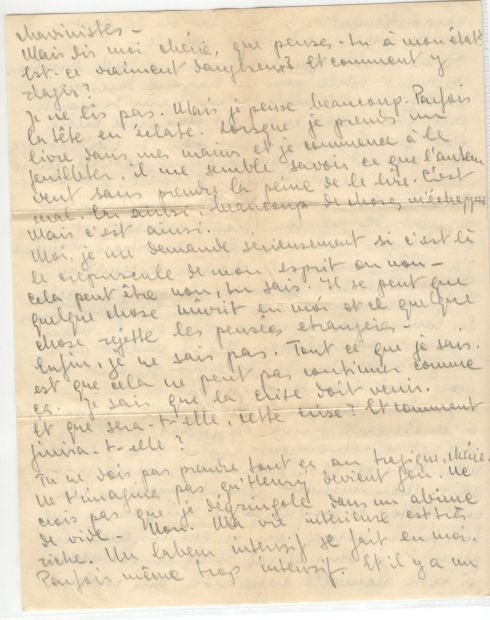 chauvinistes –
Mais dis moi chérie, que penses-tu à mon état?
Est-ce vraiment dangereux? Et comment y
réagir?
Je ne lis pas. Mais je pense beaucoup. Parfois
la tête en éclate. Lorsque je prends un
livre dans mes mains et je commence à le
feuilleter, il me semble savoir ce que l'auteur
veut sans prendre la peine de le lire. C'est
mal. Car ainsi, beaucoup de choses m'échappent
Mais c'est ainsi.
Moi, je me demande sérieusement si c'est là
le crépuscule de mon esprit ou non –
cela peut être non, tu sais. Il se peut que
quelque chose mûrit en moi et ce quelque
chose rejette les pensées étrangères –
Enfin, je ne sais pas. Tout ce que je sais.
est que cela ne peut pas continuer comme
ça. Je sais que la crise doit venir.
Et que sera-t-elle, cette crise? Et comment
finira-t-elle?
Tu ne dois pas prendre tout ça au tragique, chérie.
Ne t'imagine pas qu'Henry devient fou. Ne
crois pas que je dégringole dans un abîme
de vide – Non. Ma vie intérieure est très
riche. Un labeur intensif se fait en moi.
Parfois même trop intensif. Et il y a un